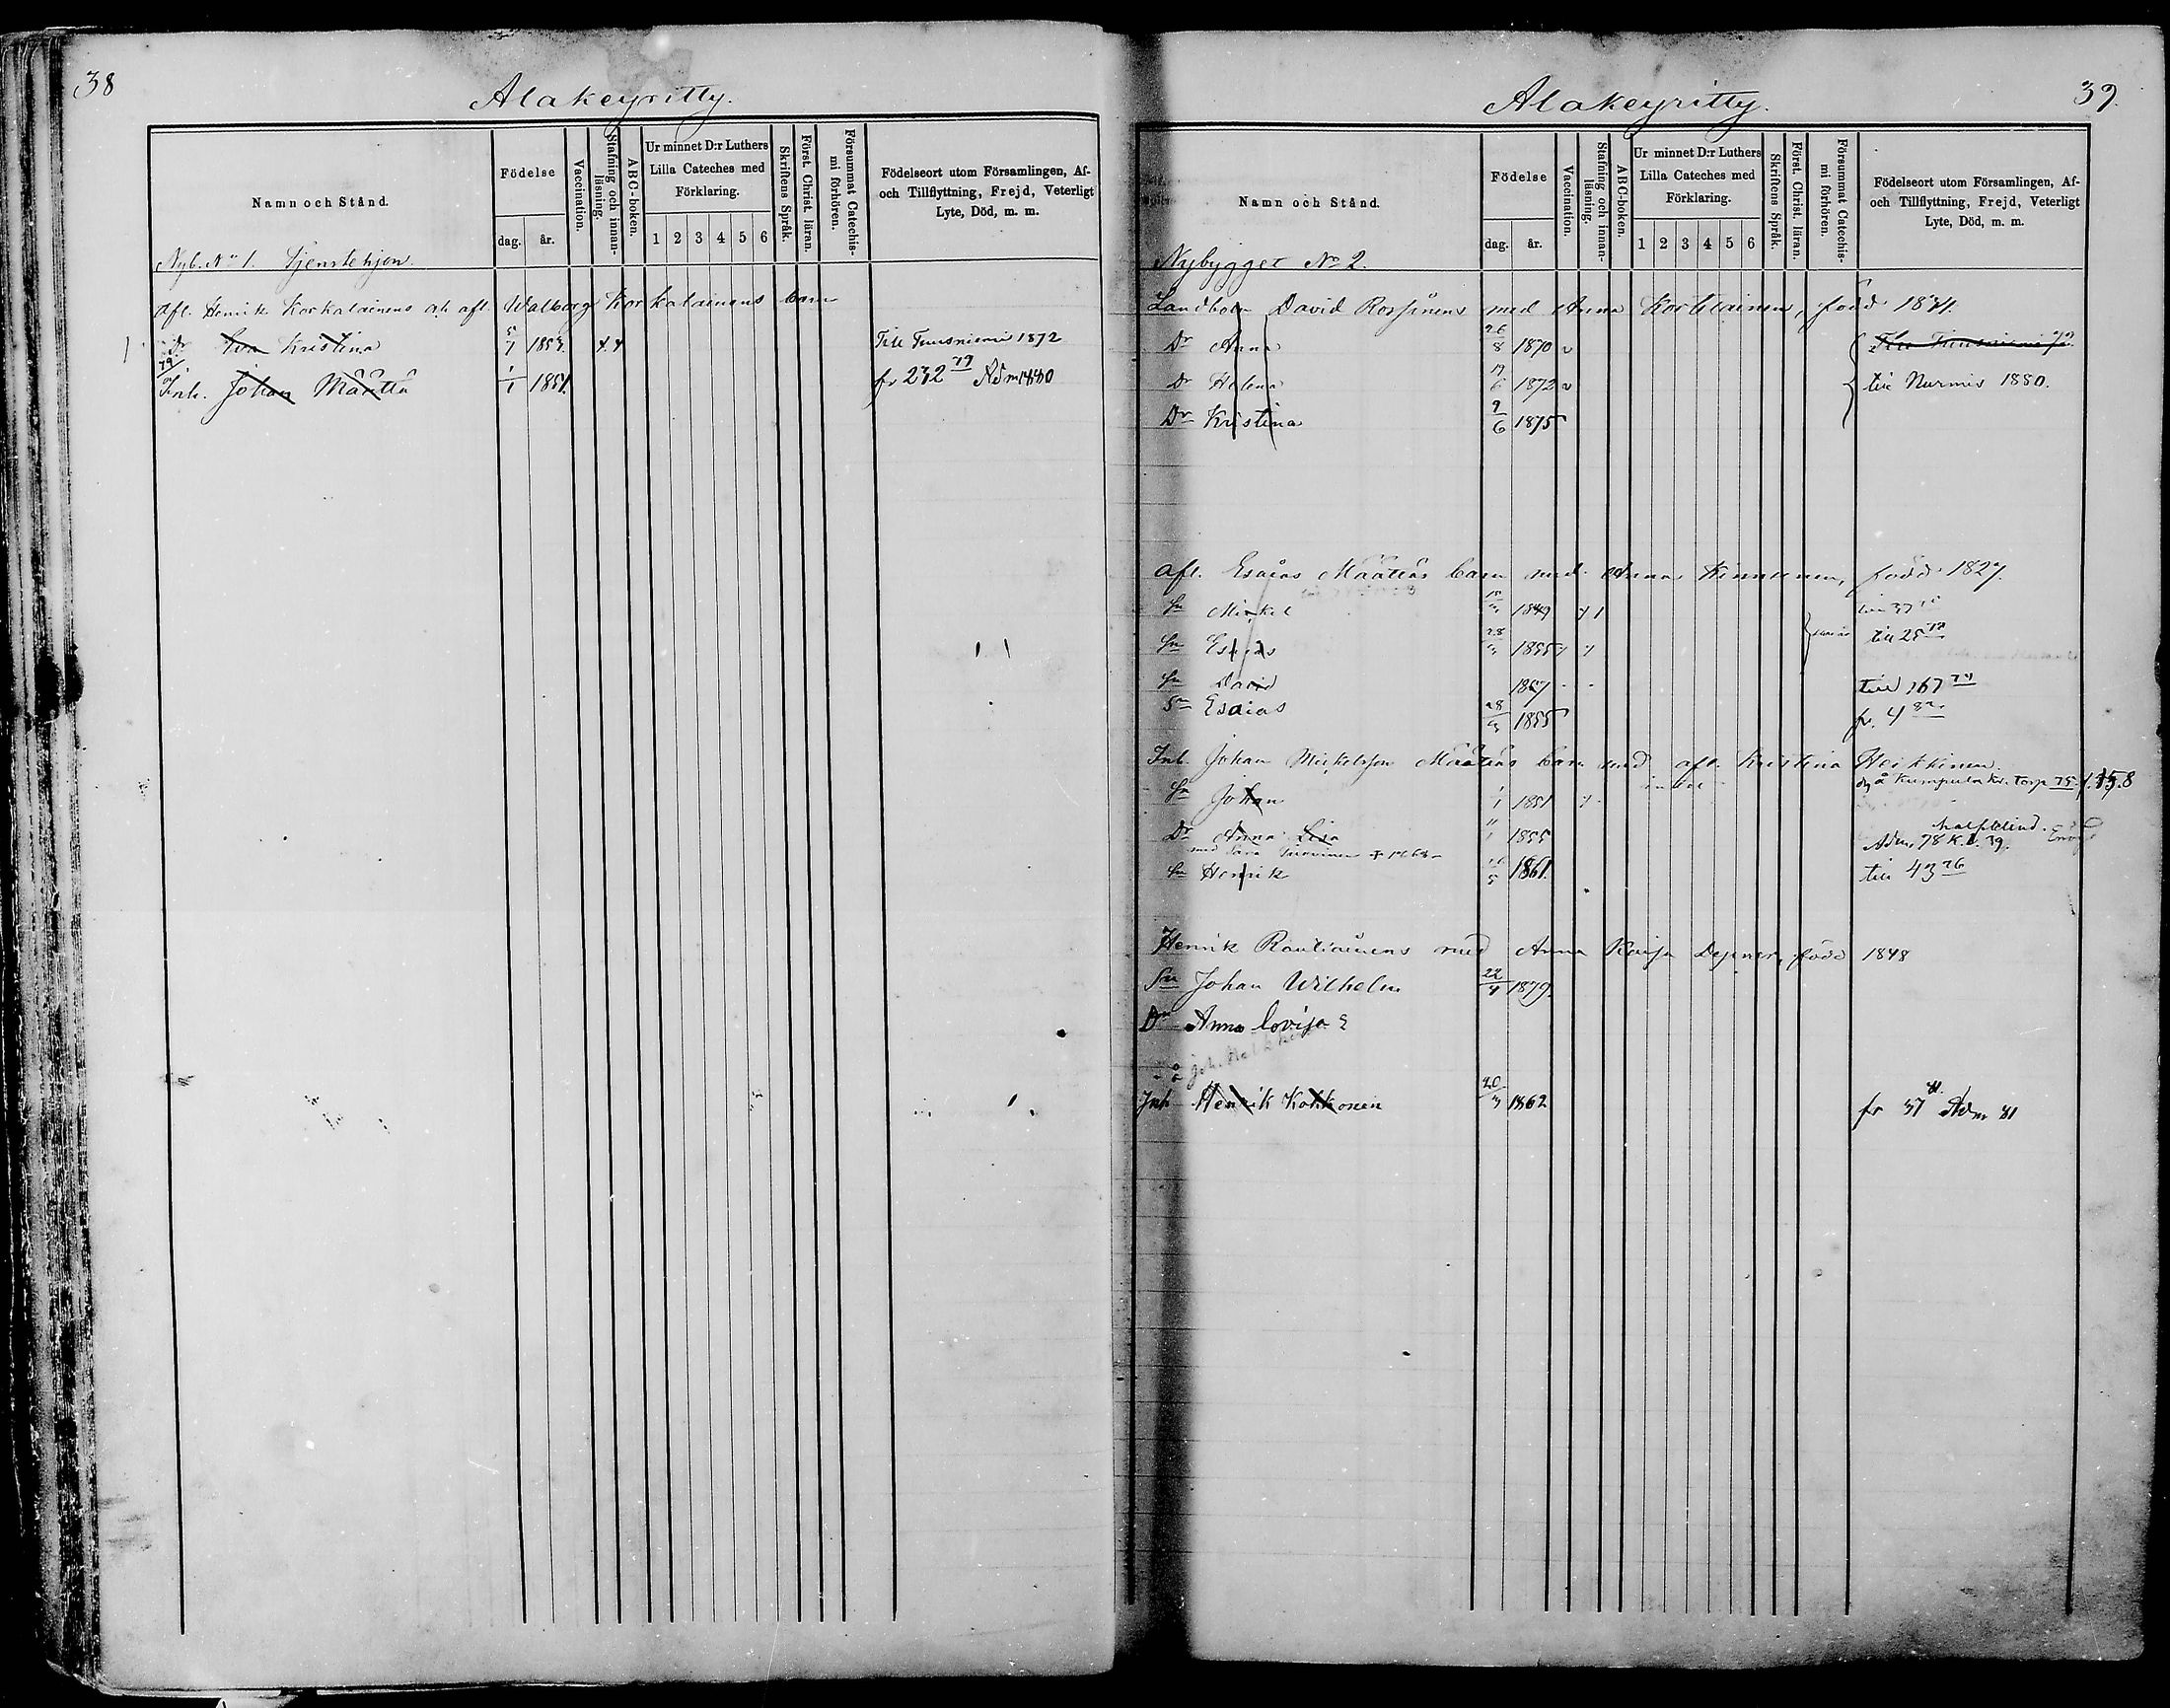 38
Alakeyritty.
Namn och Stånd.
Födelse
dag.
år.
Vaccination.
Stafning och innanläsning.
ABC-boken.
Ur minnet D:r Luthers
Lilla Cateches med
Förklaring.
1 2 3 4 5 6
Skriftens Språk.
Först. Christ. läran.
Försummat Catechismi förhören.
Födelseort utom Församlingen, Af-
och Tillflyttning, Frejd, Veterligt
Lyte, Död, m. m.
Nyb. No 1. Tjenstehjon.
Afl. Henrik Korkalainens o. h. afl. Walborg Korkalainens barn
Dr Eva Kristina 5/7 1857. Till Tuusniemi 1872
79
Inh. Johan Määttä 1/1 1851. fr 232 79 Adm 1880
39.
Alakeyritty.
Namn och Stånd.
Födelse
dag.
år.
Vaccination.
Stafning och innanläsning.
ABC-boken.
Ur minnet D:r Luthers
Lilla Cateches med
Förklaring.
1 2 3 4 5 6
Skriftens Språk.
Först. Christ. läran.
Försummat Catechismi förhören.
Födelseort utom Församlingen, Af-
och Tillflyttning, Frejd, Veterligt
Lyte, Död, m. m.
Nybygget No 2.
Landbon David Rossinens med Anna Kortelainen, född 1841.
Dr Anna 26/8 1870 v Till Tuusniemi
Dr Helena 17/6 1872 v till Nurmis 1880.
Dr Kristina 9/6 1875
Afl. Esaias Määttäs barn med Anna Kinnunen, född 1827.
Sn Mickel 1849 till 37
Sn Esaias 28/3 1855 till 25 79
Sn David 1857 till 167 79
Sn Esaias 28/3 1855 fr. 4 82
Inh. Johan Mickelsson Määttäs barn med afl. Kristina Heikkinen.
Sn Johan 1/1 1851 å Kumpula kr. torp 75. f. 158
Dr Anna Lisa 1855 halfblind.
Adm. 78 K. b. 39.
med Sara
Sn Henrik 1861. till 43 76
Henrik Rautiainens med Anna Kaisa född 1848
Sn Johan Wilhelm 22/4 1879.
Dr Anna Lovisa
Inh Henrik Kokkonen 20/3 1862 fr 37 81. Adm 81